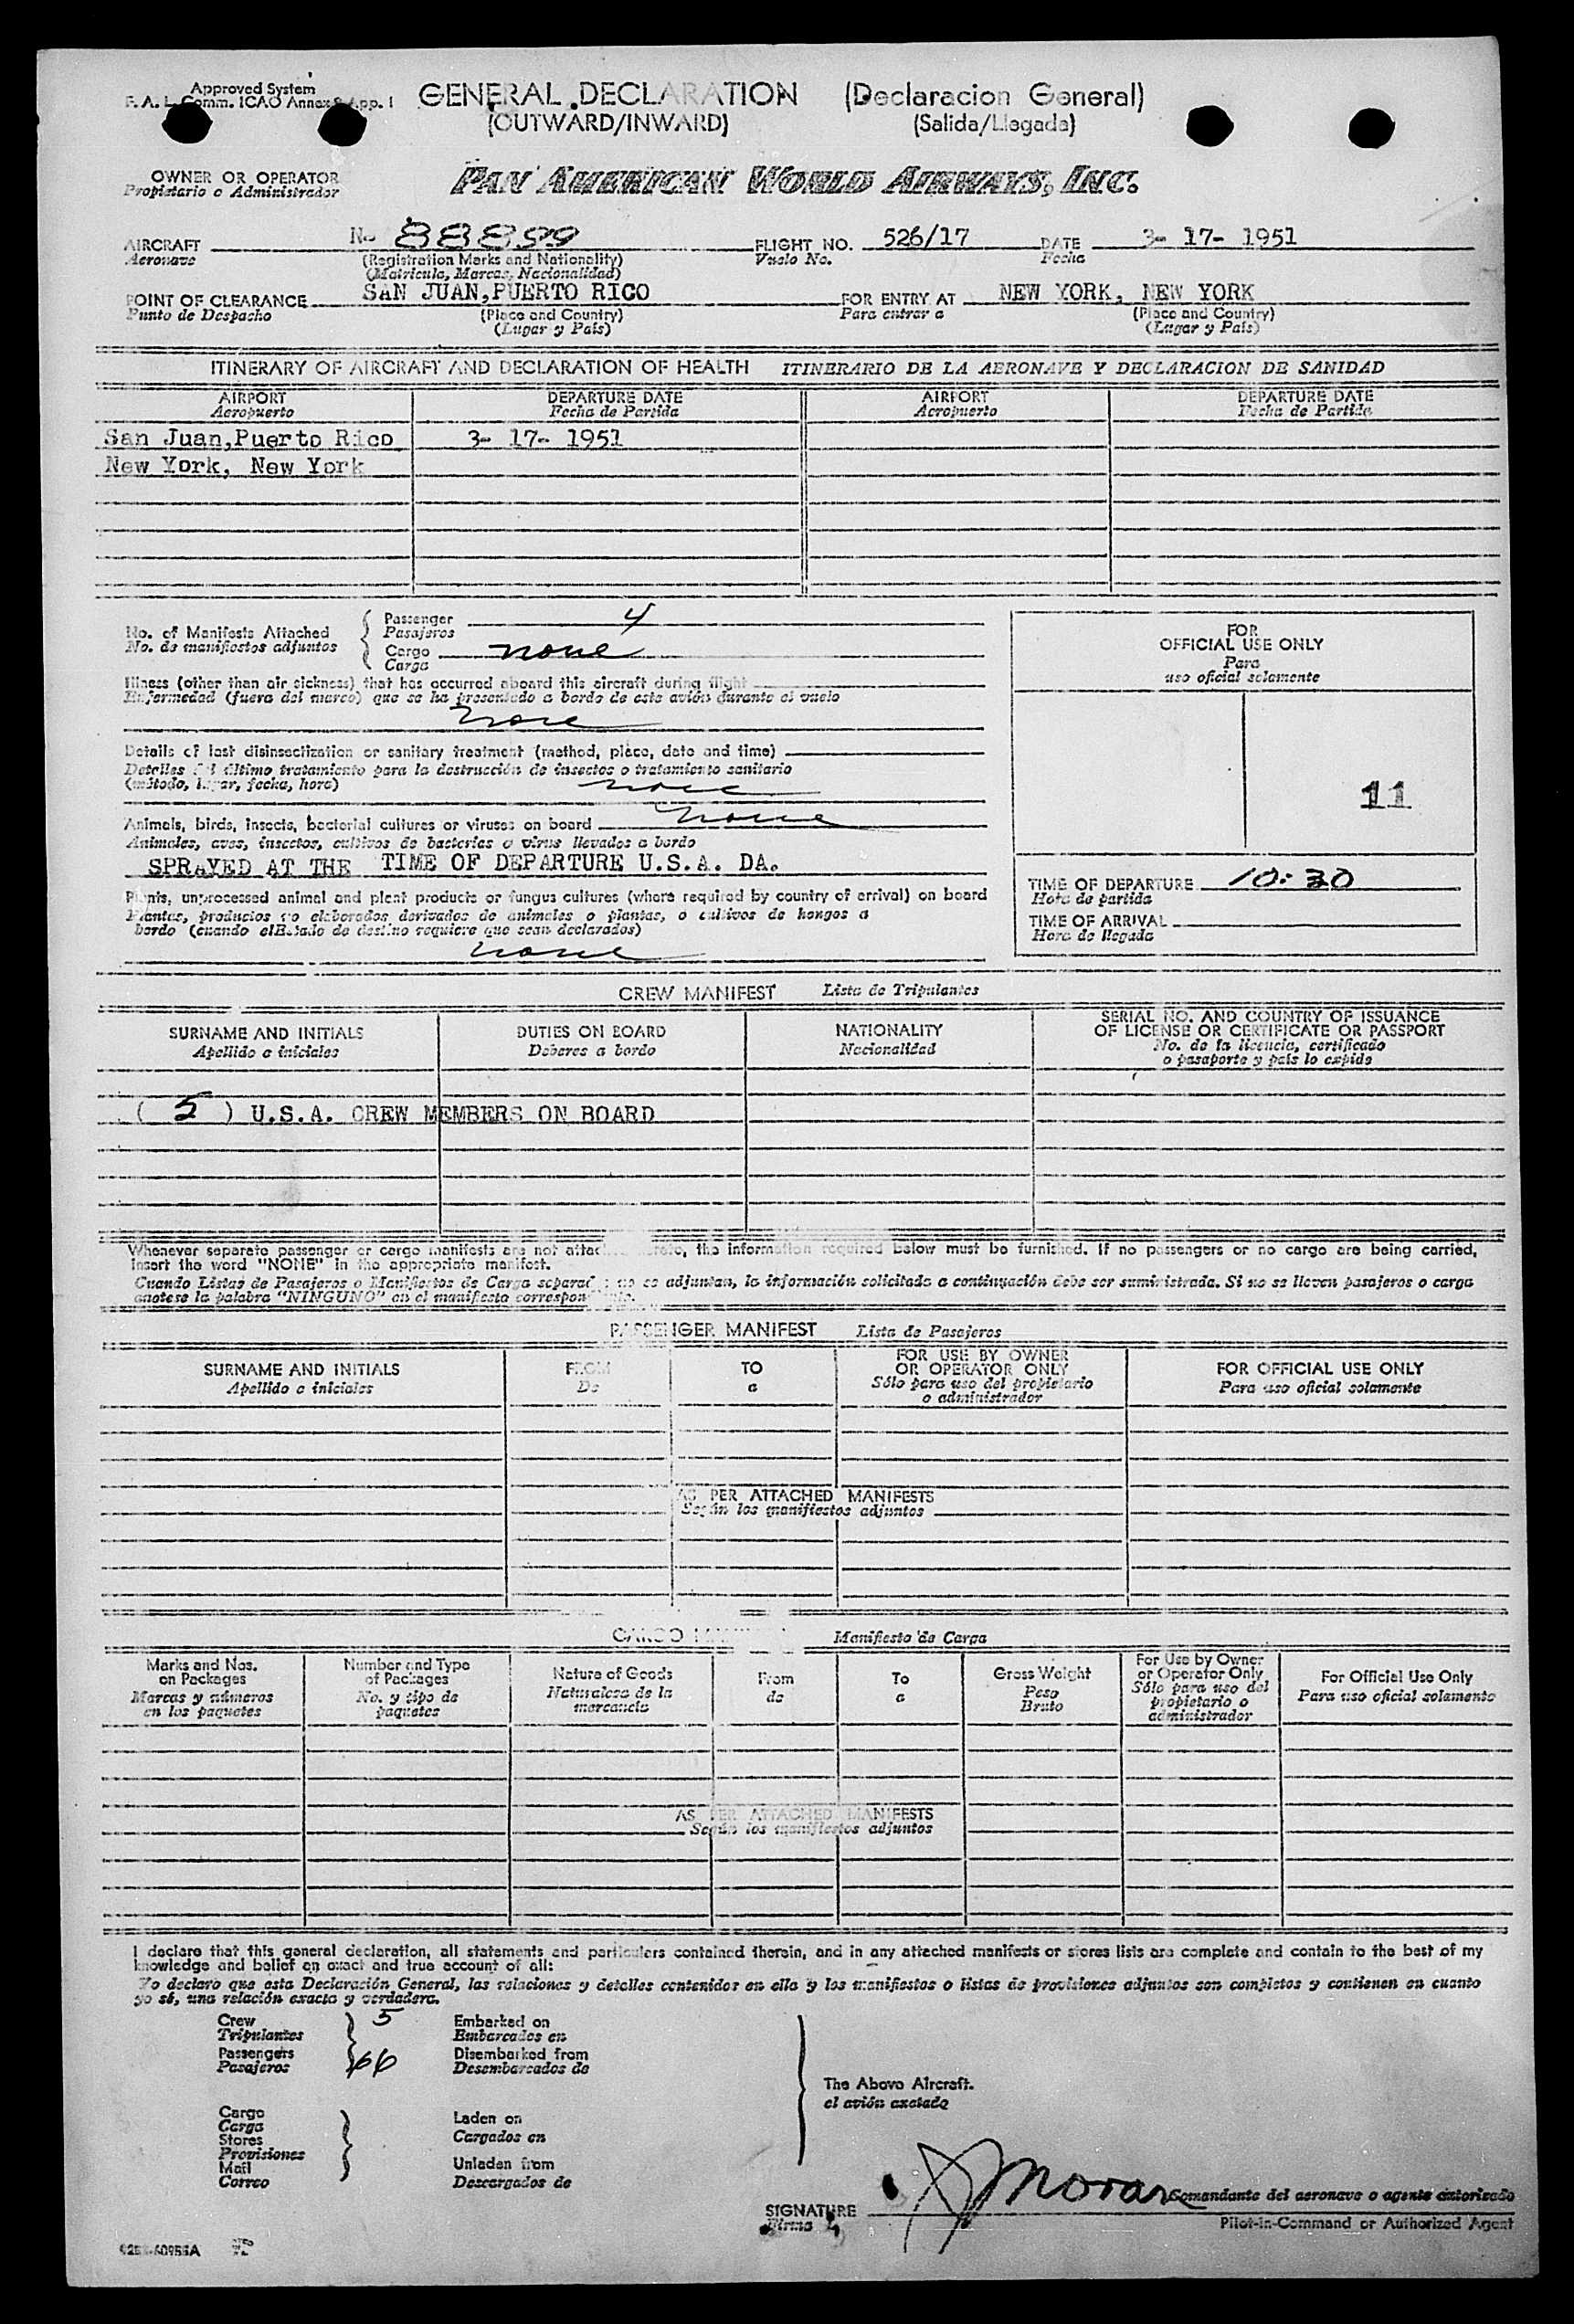 Approved System
F. A. L. Comm. ICAO Annex 9 App. I
GENERAL DECLARATION (Declaracion General)
(OUTWARD/INWARD) (Salida/Llegada)
OWNER OR OPERATOR
Propietario o Administrador
PAN AMERICAN WORLD AIRWAYS, INC.
AIRCRAFT N- 88899 FLIGHT NO. 526/17 DATE 3- 17- 1951
Aeronave (Registration Marks and Nationality) Vuelo No. Fecha
(Matricula, Marcas, Nacionalidad)
POINT OF CLEARANCE SAN JUAN,PUERTO RICO FOR ENTRY AT NEW YORK, NEW YORK
Punto de Despacho (Place and Country) Para entrar a (Place and Country)
(Lugar y País) (Lugar y País)
ITINERARY OF AIRCRAFT AND DECLARATION OF HEALTH ITINERARIO DE LA AERONAVE Y DECLARACION DE SANIDAD
AIRPORT DEPARTURE DATE AIRPORT DEPARTURE DATE
Aeropuerto Fecha de Partida Aeropuerto Fecha de Partida
San Juan,Puerto Rico 3- 17- 1951
New York, New York
No. of Manifests Attached
No. de manifiestos adjuntos
Passenger 4
Pasajeros
Cargo none
Carga
Illness (other than air sickness) that has occurred aboard this aircraft during flight
Enfermedad (fuera del mareo) que se ha presentado a bordo de este avión durante el vuelo
none
Details of last disinsectization or sanitary treatment (method, place, date and time)
Detalles del último tratamiento para la destrucción de insectos o tratamiento sanitario
(método, lugar, fecha, hora) none
Animals, birds, insects, bacterial cultures or viruses on board none
Animales, aves, insectos, cultivos de bacterias o virus llevados a bordo
SPRAYED AT THE TIME OF DEPARTURE U.S.A. DA.
Plants, unprocessed animal and plant products or fungus cultures (where required by country of arrival) on board
Plantas, productos no elaborados derivados de animales o plantas, o cultivos de hongos a
bordo (cuando el Estado de destino requiere que sean declarados)
none
FOR
OFFICIAL USE ONLY
Para
uso oficial solamente
11
TIME OF DEPARTURE 10:30
Hora de partida
TIME OF ARRIVAL
Hora de llegada
CREW MANIFEST Lista de Tripulantes
SURNAME AND INITIALS DUTIES ON BOARD NATIONALITY SERIAL NO. AND COUNTRY OF ISSUANCE
OF LICENSE OR CERTIFICATE OR PASSPORT
Apellido e iniciales Deberes a bordo Nacionalidad No. de la licencia, certificado
o pasaporte y país lo expide
( 5 ) U.S.A. CREW MEMBERS ON BOARD
Whenever separate passenger or cargo manifests are not attached hereto, the information required below must be furnished. If no passengers or no cargo are being carried,
insert the word "NONE" in the appropriate manifest.
Cuando Listas de Pasajeros o Manifiestos de Carga separados no se adjuntan, la información solicitada a continuación debe ser suministrada. Si no se llevan pasajeros o carga
anotese la palabra "NINGUNO" en el manifiesto correspondiente.
PASSENGER MANIFEST Lista de Pasajeros
SURNAME AND INITIALS FROM TO FOR USE BY OWNER
OR OPERATOR ONLY FOR OFFICIAL USE ONLY
Apellido e iniciales De a Sólo para uso del propietario
o administrador Para uso oficial solamente
AS PER ATTACHED MANIFESTS
Según los manifiestos adjuntos
CARGO MANIFEST Manifiesto de Carga
Marks and Nos.
on Packages
Marcas y números
en los paquetes
Number and Type
of Packages
No. y tipo de
paquetes
Nature of Goods
Naturaleza de la
mercancía
From
de
To
a
Gross Weight
Peso
Bruto
For Use by Owner
or Operator Only
Sólo para uso del
propietario o
administrador
For Official Use Only
Para uso oficial solamente
AS PER ATTACHED MANIFESTS
Según los manifiestos adjuntos
I declare that this general declaration, all statements and particulars contained therein, and in any attached manifests or stores lists are complete and contain to the best of my
knowledge and belief an exact and true account of all:
Yo declaro que esta Declaración General, las relaciones y detalles contenidos en ella y los manifiestos o listas de provisiones adjuntos son completos y contienen en cuanto
yo sé, una relación exacta y verdadera.
Crew 5 Embarked on
Tripulantes Embarcados en
Passengers 66 Disembarked from
Pasajeros Desembarcados de
The Above Aircraft.
el avión
Cargo
Carga
Stores
Provisiones
Mail
Correo
Laden on
Cargados en
Unladen from
Descargados de
SIGNATURE Comandante del aeronave o agente autorizado
Firma Pilot-in-Command or Authorized Agent